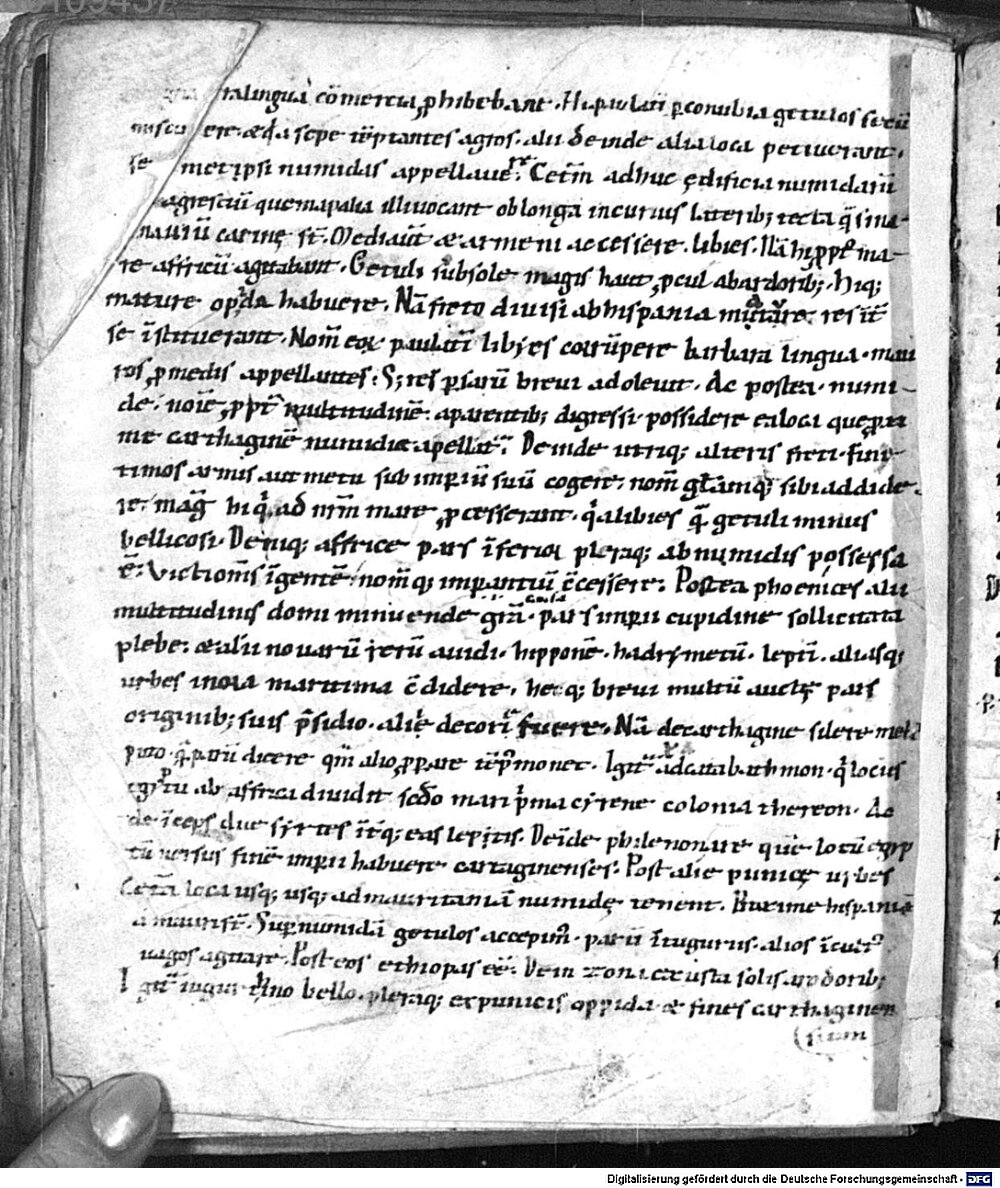 ralinguā cōmercia ꝓhibebant. Hi paulatī ꝑconubia getulos secū
miscuere. & q̄a sepe tēptantes agros. alii deinde alia loca petiuerant.
se metipsi numidas appellauer̄. Cet̄m adhuc ędificia numidarū
agrestiū que mapalia illi uocant oblonga incuruis lateribꝫ tecta q̄si na-
nauiū carinę st̄. Mediaūt & armeni accessere. libies. Nā hi ꝓpꝉ ma-
re affricū agitabant. Getuli subsole magis haut ꝓcul abardoribꝫ. hiqꝫ
mature opida habuere. Nā freto diuisi abhispania mutare res int̄
se īstituerant. Nom̄ eoꝝ paulatī libies corrūpere barbara lingua. mau
ros ꝓ medis appellantes. Sꝫ res ꝑsarū breui adoleuit. Ac postea. numi-
de. noīe ꝓpt̄ multitudinē. aparentibꝫ digressi. possidere ea loca que ꝓxi
me carthaginē numidia apellat̄. Deinde utriqꝫ alteris freti. fini-
timos armis aut metu sub imperiū suū cogere. nom̄ gl̄amqꝫ sibi addide-
re. mag̅ hi q̄ ad nr̄m mare ꝓcesserant. q̄a libies q̄̅ getuli minus
bellicosi. Deniqꝫ affrice pars īferior pleraqꝫ ab numidis possessa
ē. Victi om̄s ī gentē nom̄qꝫ imꝑantiū ccessere. Postea phoenices alii
multitudinis domi minuende gr̄a. causa pars imꝑii cupidine sollicitata
plebe. & aliis nouarū rerū auidis. hipponē. hadrymetū. leptī. aliasqꝫ
urbes inora maritima cdidere. heqꝫ breui multū auctę pars
originibꝫ suis p̄sidio. alię decori fuere. Nā de carthagine silere meli
puto. q̄̅ parū dicere qm̄ alio ꝓperare tēpꝰ monet. Igit̄ ad catabathmon. q̄ locus
egyptū ab affrica diuidit sc̄do mari p̄ma cyrene colonia thereon. Ac
deīceps due syrtes īt̄qꝫ eas leptis. Deīde philenon are quē locū egyp
tū uersus finē imperii habuere cartaginenses. Post alie punicę urbes
Cet̄a loca usqꝫ usqꝫ ad mauritaniā numidę tenent. Proxime hispaniā
a mauri st̄. Suꝑ numidā getulos accepim̄. partī ī tuguriis. alios īcultꝰ
uagos agitare. Post eos ethiopas eē. Dein zona exusta solis ardoribꝫ
Igit̄ iugurthino bello. pleraqꝫ ex punicis oppida & fines carthaginen
sium
Digitalisierung gefördert durch die Deutsche Forschungsgemeinschaft - DFG